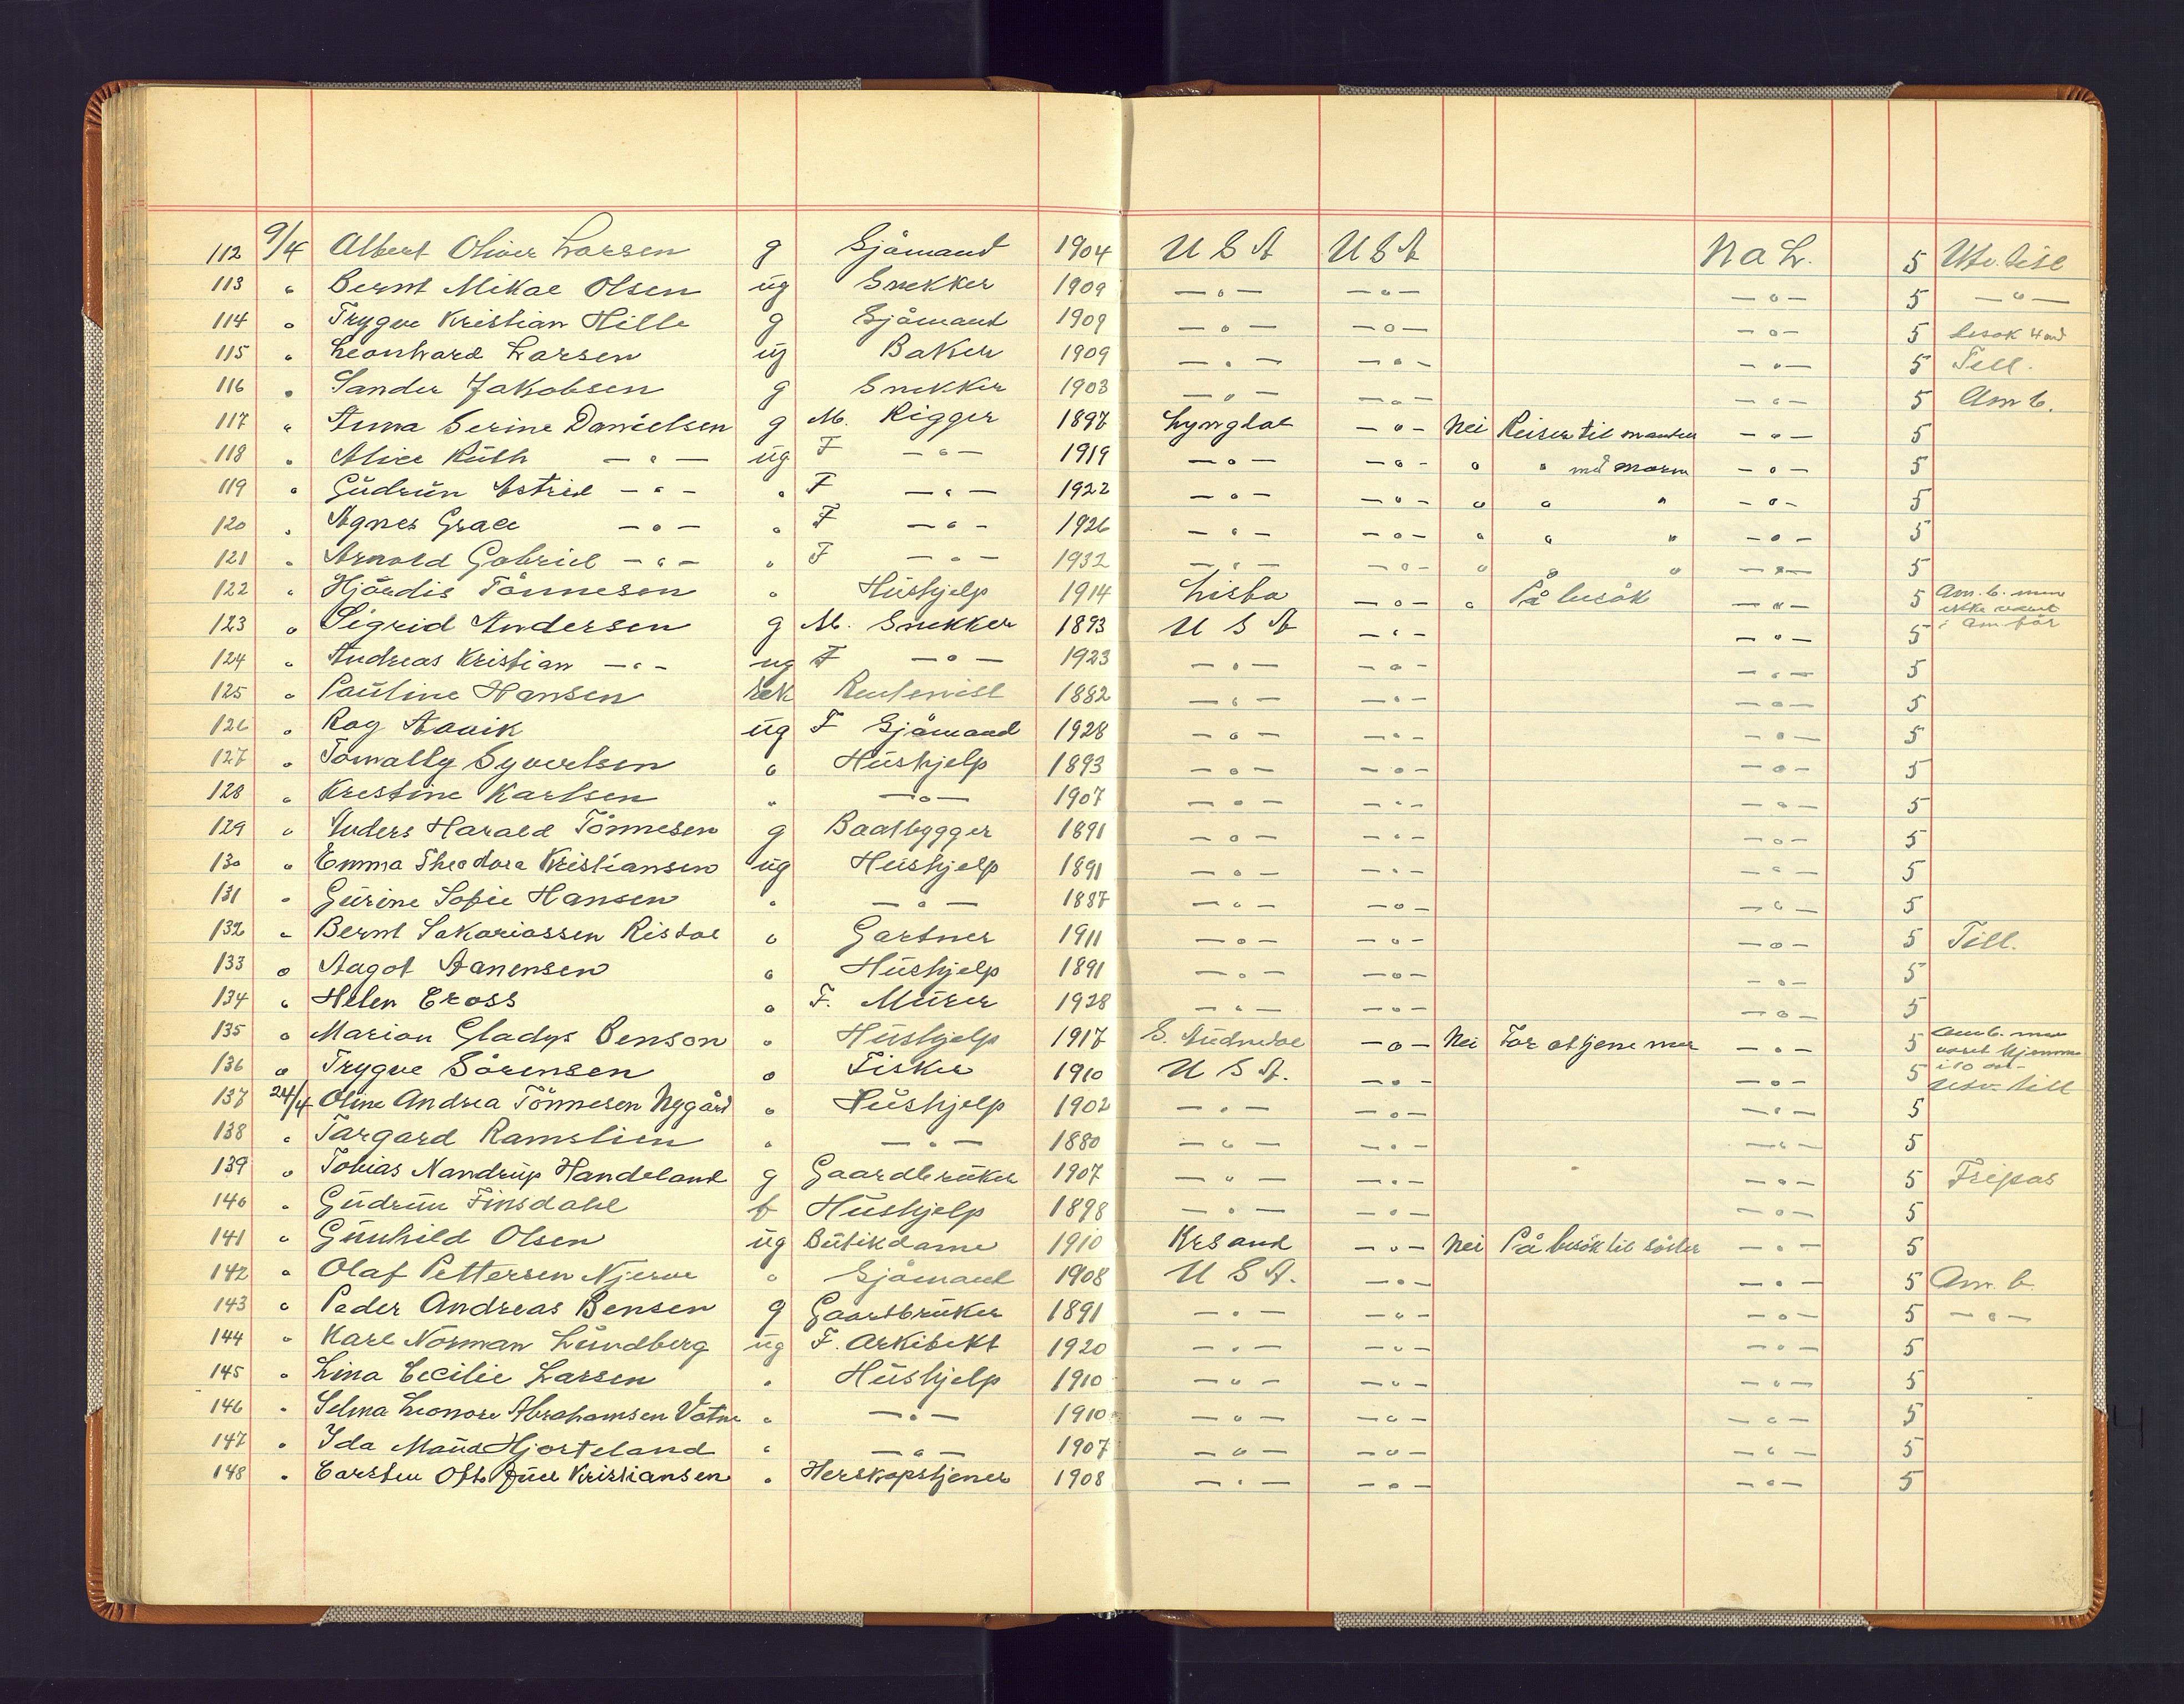 112 9/4 Albert Oliver Larsen g Sjåmand 1904 U S A U S A N a L. 5 Utv. tise
113 " Bernt Mikal Olsen ug Snekker 1909 — " — — " — — " — 5 — " —
114 " Trygve Kristian Hille g Sjåmand 1909 — " — — " — — " — 5 besøk 4 md
115 " Leonhard Larsen ug Baker 1909 — " — — " — — " — 5 Till.
116 " Sander Jakobsen g Snekker 1903 — " — — " — — " — 5 Am b.
117 " Anna Serine Danielsen g M. Rigger 1897 Lyngdal — " — Nei Reiser til manden — " — 5
118 " Alice Ruth — " — ug F — " — 1919 — " — — " — " " med moren — " — 5
119 " Gudrun Astrid — " — " F — " — 1922 — " — — " — " " " — " — 5
120 " Agnes Grace — " — " F — " — 1926 — " — — " — " " " — " — 5
121 " Arnold Gabriel — " — " F — " — 1932 — " — — " — " " " — " — 5
122 " Hjørdis Tønnesen " Hushjelp 1914 Lista — " — " På besøk — " — 5 Am. b. men ikke været i Am. før
123 " Sigrid Andersen g M. Snekker 1893 U S A — " — — " — 5
124 " Andreas Kristian — " — ug F — " — 1923 — " — — " — — " — 5
125 " Pauline Hansen Rentenist 1882 — " — — " — — " — 5
126 " Roy Aavik ug F Sjåmand 1928 — " — — " — — " — 5
127 " Syvertsen " Hushjelp 1893 — " — — " — — " — 5
128 " Krestine Karlsen " — " — 1907 — " — — " — — " — 5
129 " Anders Harald Tönnesen g Baatbygger 1891 — " — — " — — " — 5
130 " Emma Theodora Kristiansen ug Hushjelp 1891 — " — — " — — " — 5
131 " Gurine Sofie Hansen " — " — 1887 — " — — " — — " — 5
132 " Bernt Sakariassen Risdal " Gartner 1911 — " — — " — — " — 5 Till.
133 " Aagot Aanensen " Hushjelp 1891 — " — — " — — " — 5
134 " Helen Cross " F. Murer 1928 — " — — " — — " — 5
135 " Marion Gladys Benson " Hushjelp 1917 S. Audnedal — " — Nei For at tjene mer — " — 5 Am b. men været hjemme i 10 aar
136 " Trygve Sörensen " Fisker 1910 U S A. — " — — " — 5 Utv. till
137 24/4 Oline Andrea Tönnesen Nygård " Hushjelp 1902 — " — — " — — " — 5
138 " Targard Ramslien " — " — 1880 — " — — " — — " — 5
139 " Tobias Nandrup Handeland g Gaardbruker 1907 — " — — " — — " — 5 Fripas
140 " Gudrun Finsdahl f Hushjelp 1898 — " — — " — — " — 5
141 " Gunhild Olsen ug Butikdame 1910 Krsand — " — Nei På besök til söster — " — 5
142 " Olaf Pettersen Njerve " Sjåmand 1908 U S A. — " — — " — 5 Am. b.
143 " Peder Andreas Bensen g Gaardbruker 1891 — " — — " — — " — 5 — " —
144 " Karl Norman Lundberg ug F. Arkitekt 1920 — " — — " — — " — 5
145 " Lina Cecilie Larsen " Hushjelp 1910 — " — — " — — " — 5
146 " Selma Leonore Abrahamsen Vatne " — " — 1910 — " — — " — — " — 5
147 " Ida Maud Hjorteland " — " — 1907 — " — — " — — " — 5
148 " Carsten Otto Juel Kristiansen " Herskapstjener 1908 — " — — " — — " — 5